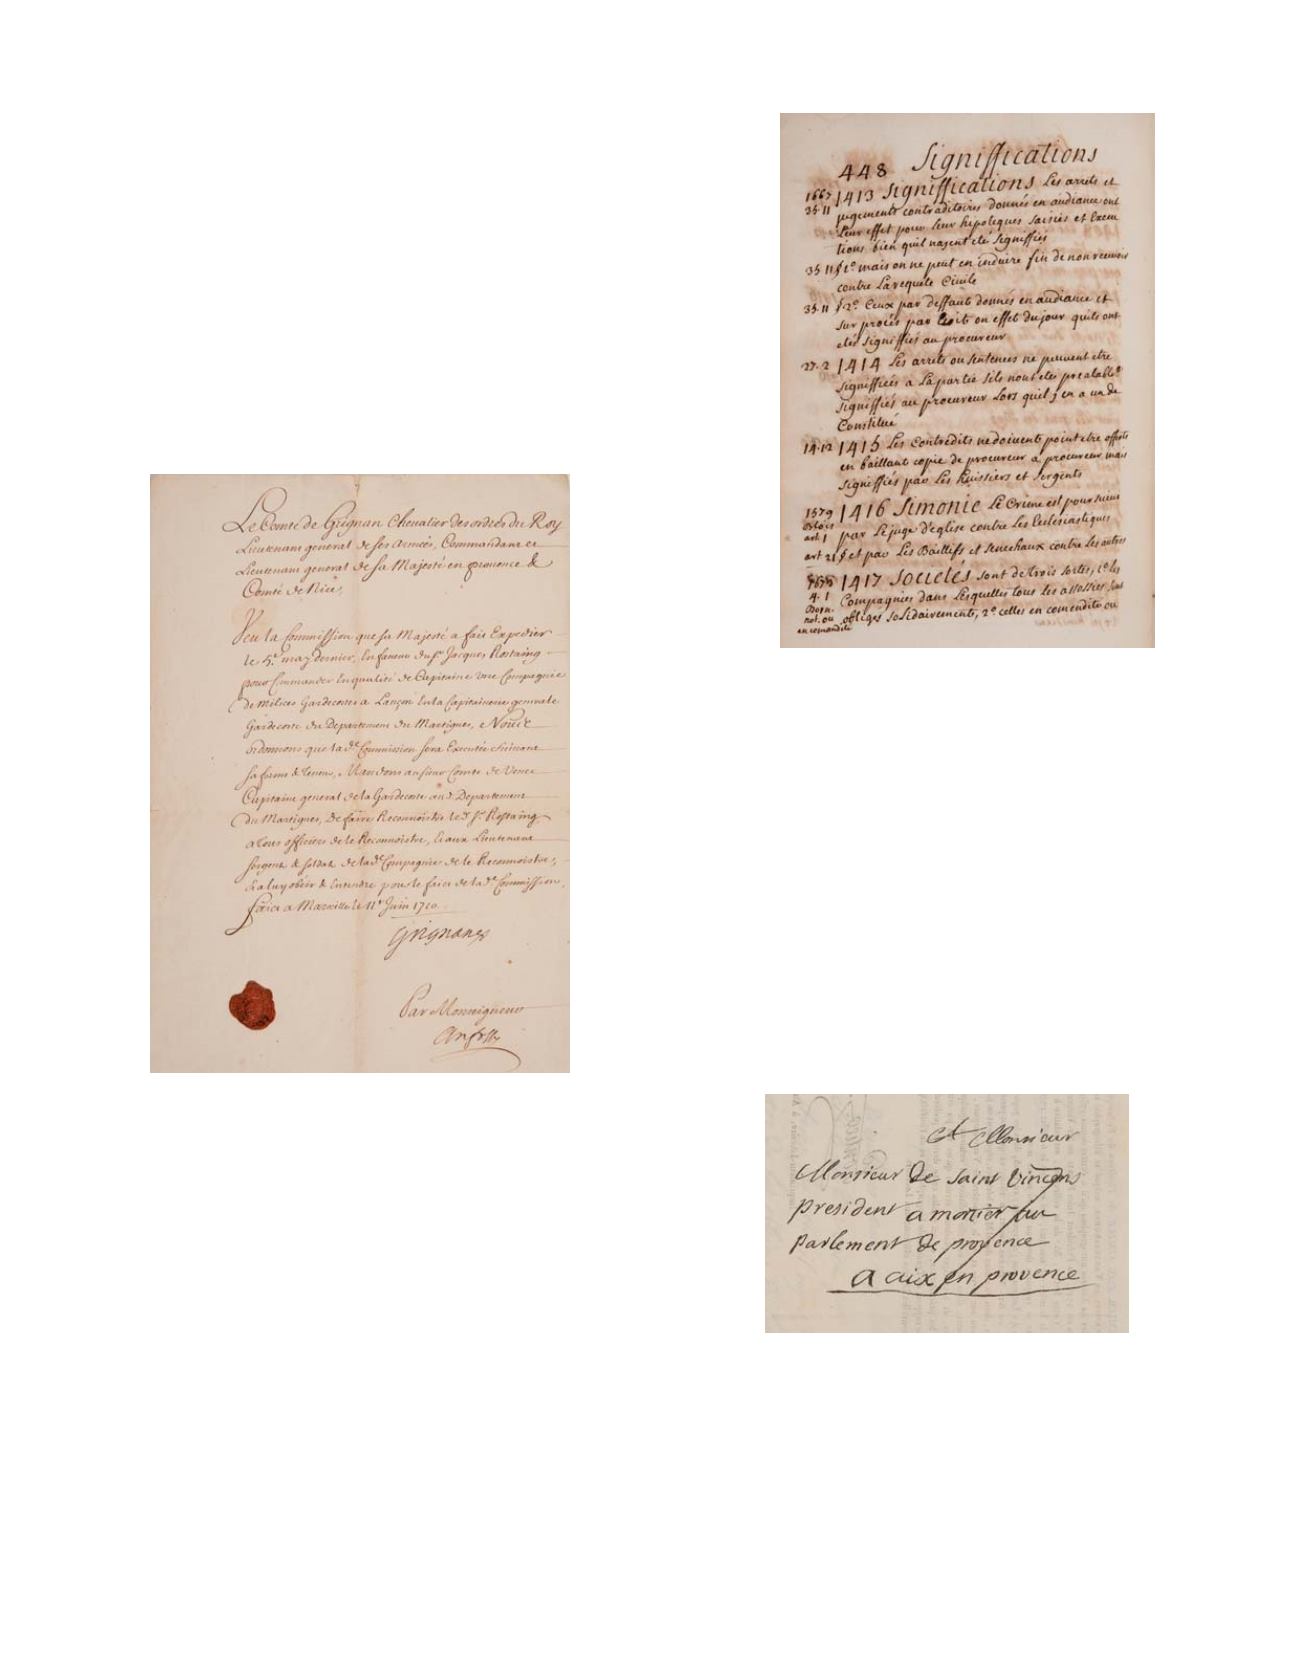 Le Comte de Grignan Chevalier des ordres du Roy
Lieutenant general de ses Armées, Commandant et
Lieutenant general de sa Majesté en provence &
Comté de Nice,
Veu la Commission que sa Majesté a fait Expedier
le 5e may dernier, En faveur du Sr Jacques Rostaing
pour Commander En qualité de Capitaine une Compagnie
de Milices Gardecostes a Lançon En la Capitainerie generale
Gardecoste du Departement du Martigues, Nous
ordonnons que lade Commission sera Executée suivant
sa forme & teneur, Mandons au sieur Comte de Vence
Capitaine general de la Gardecoste aud. Departement
du Martigues, De faire Reconnoistre led. Sr Rostaing
a tous officiers de le Reconnoistre, Et aux Lieutenant
sergent & soldat de lade Compagnie de le Reconnoistre,
Et a luy obéir & Entendre pour le faict de lade Commission,
faict a Marseille le 11e Juin 1710.
Grignan
Par Monseigneur
448 Signiffications
1667 1413 Signiffications Les arrets et
35·11 jugements contraditoires donnés en audiance ont
Leur effet pour leur hipoteques saisies et Execu
tions bien quil nayent eté signiffiés
35 11 § 1º mais on ne peut en induire fin de non recevoir
contre La requete Civile
35·11 § 2º Ceux par deffaut donnés en audiance et
sur procés par écrit on effet du jour quils ont
etés signiffiés au procureur
27·2 1414 Les arrets ou sentences ne peuvent etre
signiffiées a La partie sils nont eté préalable
signiffiés au procureur Lors quil y en a un de
Constitué
14·12 1415 Les Contredits ne doivent point etre offerts
en baillant copie de procureur a procureur mais
signiffiés par Les huissiers et sergents
1579 1416 Simonie Le Crime est poursuivi
Blois
art. 1 par Le juge d'eglise contre Les Ecclesiastiques
art 21 § et par Les Baillifs et senechaux contre les autres
1673 1417 Societés sont de trois sortes, 1º les
4·1 Compagnies dans Lesquelles tous les assossiés sont
Born.
not. ou obligés solidairement, 2º celles en comendite ou
en comandité
A Monsieur
Monsieur De saint Vincens
president a mortier au
Parlement De provence
a aix en provence